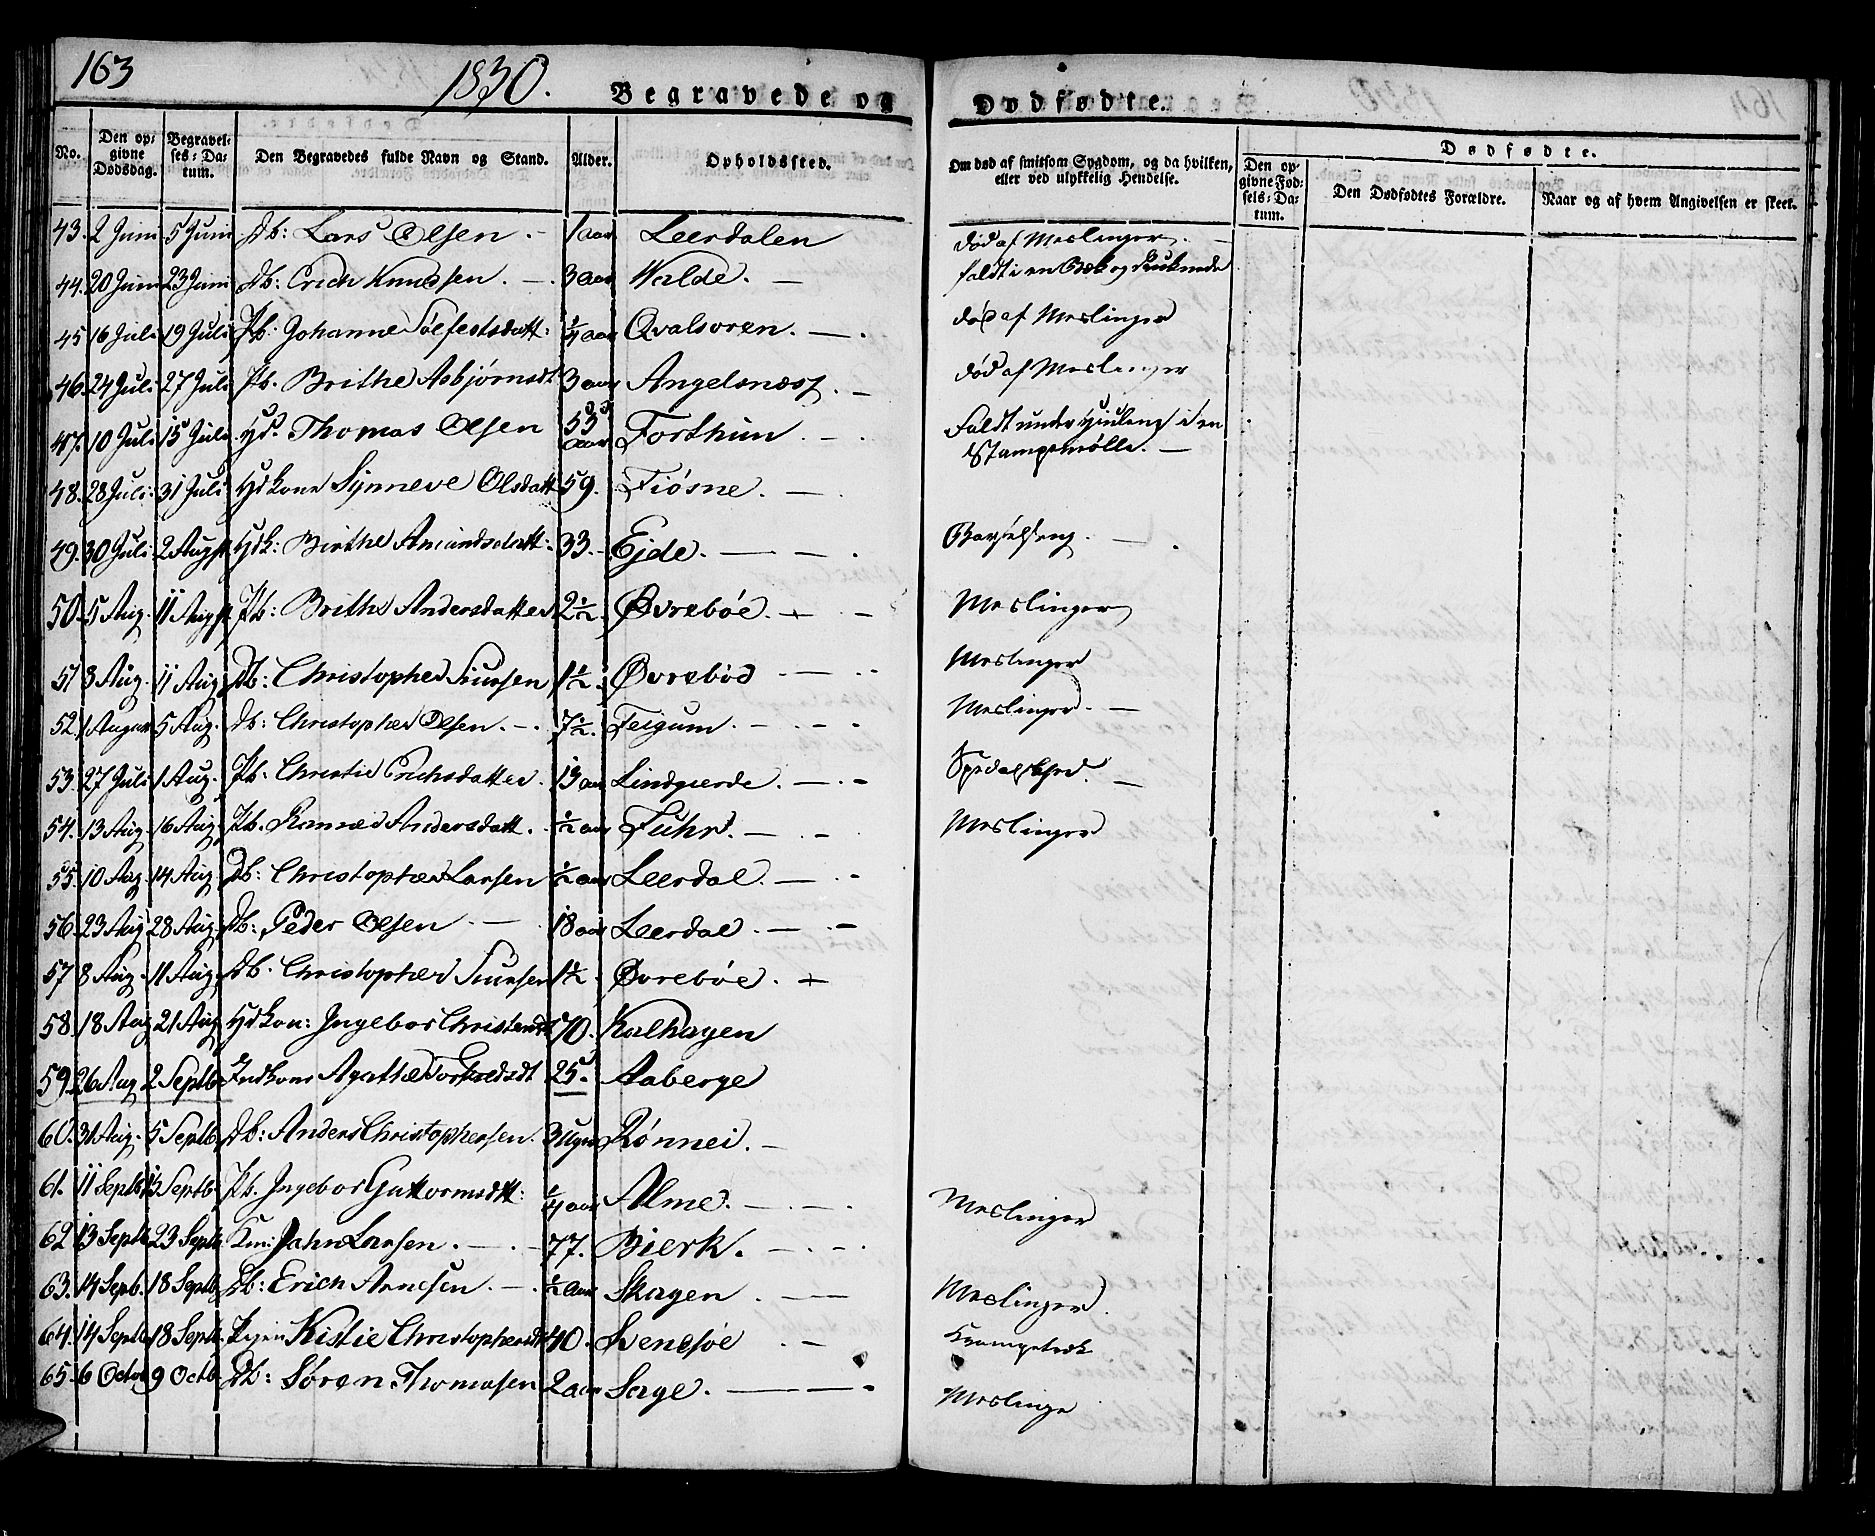 163
1830.
Begravede og Dødfødte.
No. Den opgivne Dødsdag. Begravelses-Datum. Den Begravedes fulde Navn og Stand. Alder. Opholdssted. Om død af smitsom Sygdom, og da hvilken, eller ved ulykkelig Hendelse. Dødfødte. Den opgivne Fødsels-Datum. Den Dødfødtes Forældre. Naar og af hvem Angivelsen er skeet.
43. 2 Juni 5 Juni Db: Lars Olsen. 1 aar Leerdalen død af Meslinger.
44. 20 Juni 23 Juni Db: Erich Knudsen. 3 aar Walde. faldt i en Bæk og druknede
45 16 Juli 19 Juli Pb: Johanne Sølfestsdatt: 1/4 aar Qvalsoren. død af Meslinger
46. 24 Juli 27 Juli Pb. Brithe Asbjørnsdt 3 aar Angelsnæs. død af Meslinger
47. 10 Juli 15 Juli Hd. Thomas Olsen 53 aar Forthun. Faldt under Hiulene i en Stampemølle.
48. 28 Juli 31 Juli Hdkone Synneve Olsdatt 59. Fiøsne.
49. 30 Juli 2 Augst Hdk: Birthe Amundsdatt. 33. Ejde. Barselseng.
50. 5 Aug. 11 Augst Pb: Brithe Andersdatter 2 1/2. Øvrebøe. Meslinger
51 8 Aug. 11 Aug Db: Christopher Siursen 1 1/2. Øvrebøe Meslinger
52. 1 August 5 Aug. Db: Christopher Olsen. 7 1/2. Feigum. Meslinger.
53. 27 Juli 1 Aug. Pb: Christie Erichsdatter. 13 aar Lindgierde. Spedalskhed.
54. 13 Aug. 16 Aug. Pb. Rannei Andersdatt. 1/2 aar Fuhr. Meslinger
55. 10 Aug. 14 Aug. Db: Christopher Larsen 1/2 aar Leerdal.
56. 23 Aug 28 Aug. Db: Peder Olsen. 18 aar Leerdal.
57 8 Aug. 11 Aug. Db. Christopher Siursen 1 1/2. Øvrebøe.
58. 18 Aug 21 Aug Hdkon: Ingebor Christensdt 70. Kalhagen
59. 26 Aug 2 Septb. Agathe 25. Aaberge
60. 31 Aug. 5 Septb. Db: Anders Christophersen. 3 Uger Rønnei.
61. 11 Septb 13 Septb. Pb. Ingebor Guttormsdtt: 1/4 aar Alme. Meslinger
62 13 Septb 23 Septb Km: Jahn Larsen. 77. Bierk.
63. 14 Sepb. 18 Septb. Db: Erich Arnesen. 1/2 aar Skagen. Meslinger.
64. 14 Septb 18 Septb. Kistie Christophersdt 40. Svensøe Krampetræk
65. 6 Octob 9 Octb. Db: Søren Thomasen 2 aar Sage. Meslinge